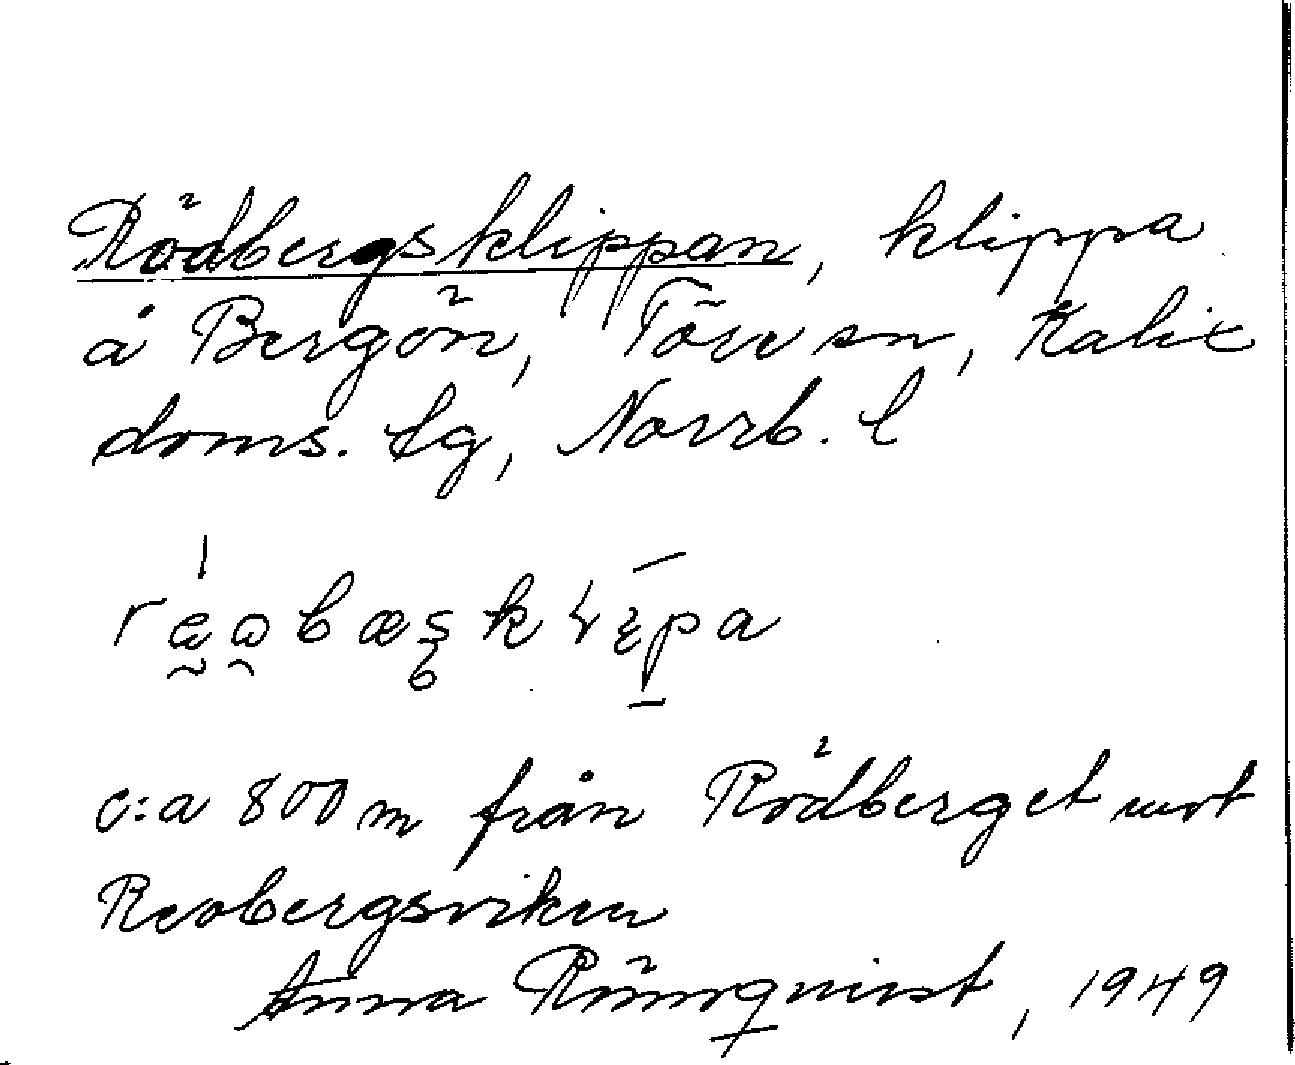 Rödbergsklippan, klippa
å Bergön, Töre sn, Kalix
doms. lg, Norrb. l
c:a 800 m från Rödberget mot
Revbergsviken
Anna Rönnqvist, 1949